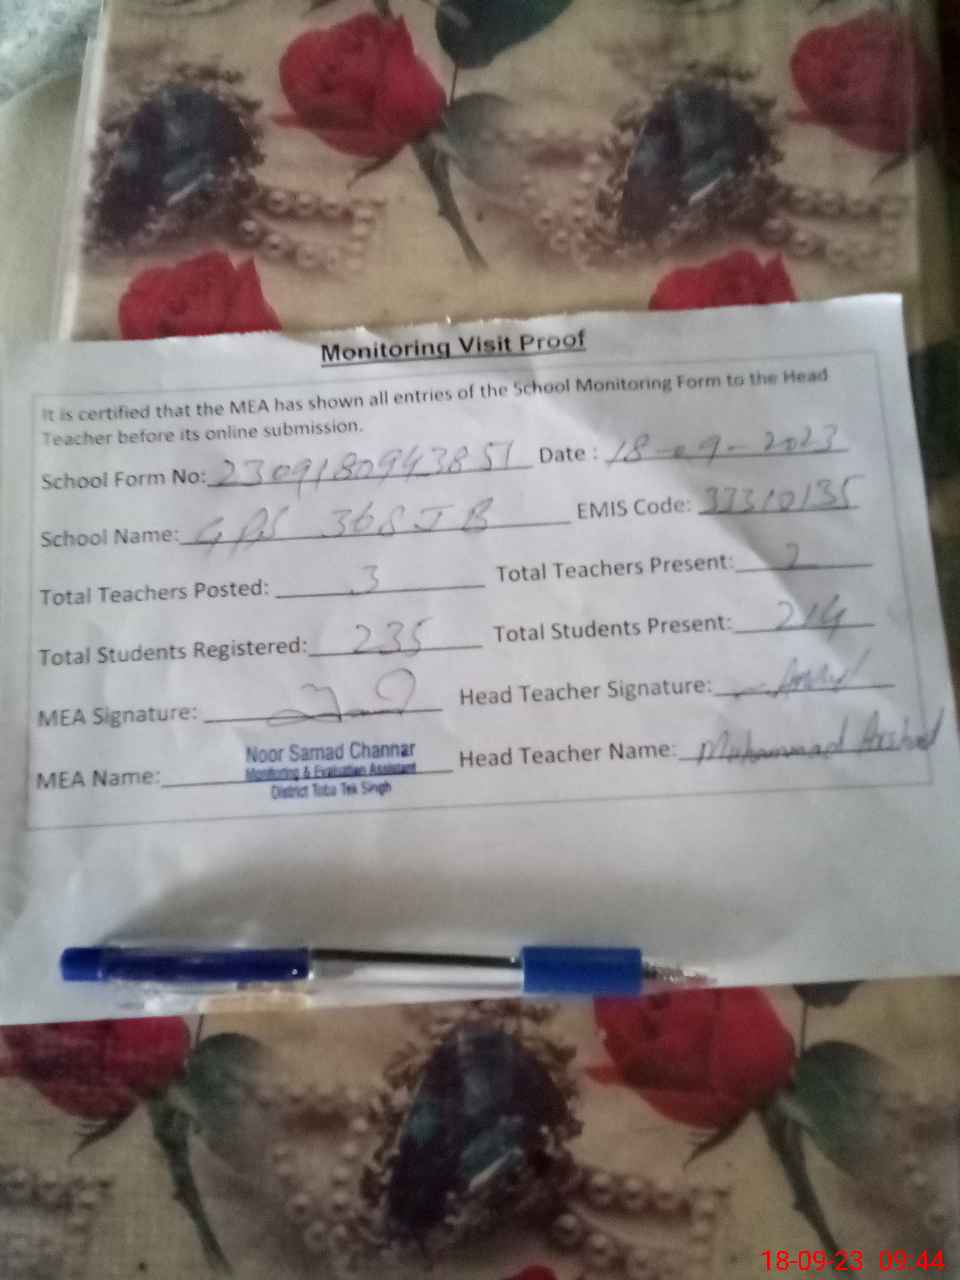 Monitoring Visit Proof
It is certified that the MEA has shown all entries of the School Monitoring Form to the Head
Teacher before its online submission.
School Form No: 2309180943851 Date : 18-09-2023
School Name: GPS 368 JB EMIS Code: 33310135
Total Teachers Posted: 3 Total Teachers Present: 2
Total Students Registered: 235 Total Students Present: 214
MEA Signature: Head Teacher Signature:
MEA Name: Noor Samad Channar Head Teacher Name: Muhammad Arshad
Monitoring & Evaluation Assistant
District Toba Tek Singh
18-09-23 09:44